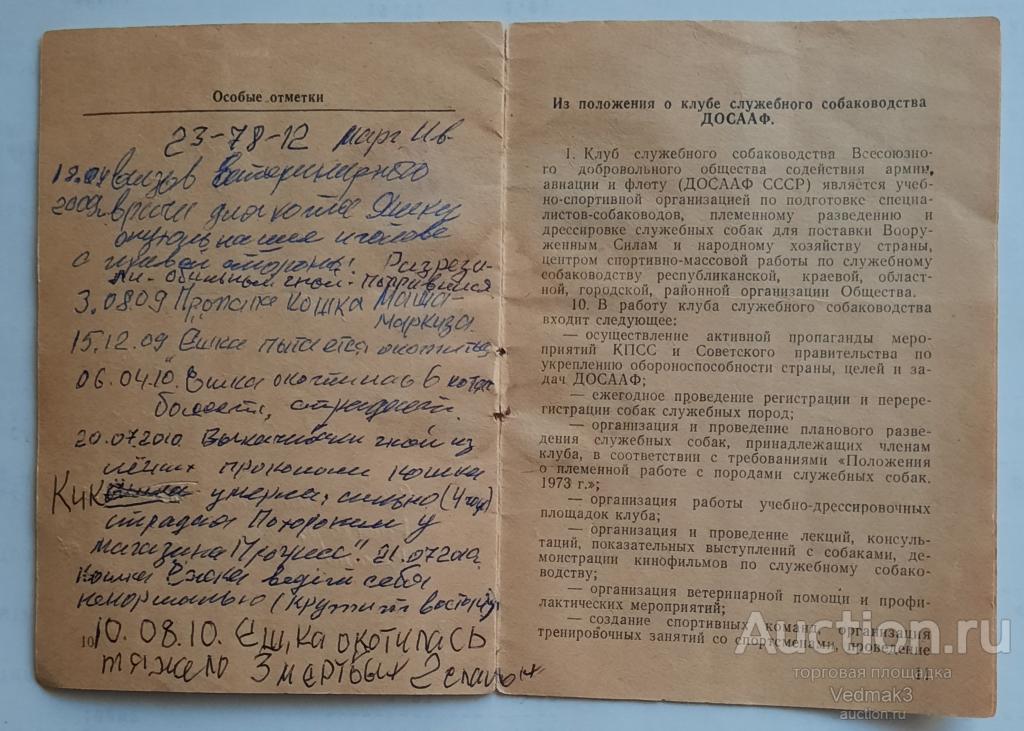 Особые отметки
23-78-12 Марг. Ив.
18.04 вызов Ветеринарного
2009г. врача для кота
опухоль на шее и голове
с правой стороны! Разреза-
ли - гной
3.08.09 Пропала кошка Маша-
Маркиза.
15.12.09 Ешка пытается окотиться
06.04.10. Ешка окотилась 6 котят
болеет, страдает.
20.07.2010 Выкачивали гной из
лёгких прокололи кошка
Кика умерла, сильно (4 года)
страдала Похоронили у
магазина "Прогресс"! 21.07.2010
Кошка ведёт себя
ненормально (крутит восьмёр
10
10.08.10. Ешка окотилась
тяжело 3 мертвых 2 слабых
Из положения о клубе служебного собаководства
ДОСААФ.
1. Клуб служебного собаководства Всесоюзно-
го добровольного общества содействия армии,
авиации и флоту (ДОСААФ СССР) является учеб-
но-спортивной организацией по подготовке специа-
листов-собаководов, племенному разведению и
дрессировке служебных собак для поставки Воору-
женным Силам и народному хозяйству страны,
центром спортивно-массовой работы по служебному
собаководству республиканской, краевой, област-
ной, городской, районной организации Общества.
10. В работу клуба служебного собаководства
входит следующее:
— осуществление активной пропаганды меро-
приятий КПСС и Советского правительства по
укреплению обороноспособности страны, целей и за-
дач ДОСААФ;
— ежегодное проведение регистрации и перере-
гистрации собак служебных пород;
— организация и проведение планового разве-
дения служебных собак, принадлежащих членам
клуба, в соответствии с требованиями «Положения
о племенной работе с породами служебных собак.
1973 г.»;
— организация работы учебно-дрессировочных
площадок клуба;
— организация и проведение лекций, консуль-
таций, показательных выступлений с собаками, де-
монстрации кинофильмов по служебному собако-
водству;
— организация ветеринарной помощи и профи-
лактических мероприятий;
— создание спортивных команд, организация
тренировочных занятий со спортсменами, проведение
11
Auction.ru
торговая площадка
Vedmak3
auction.ru